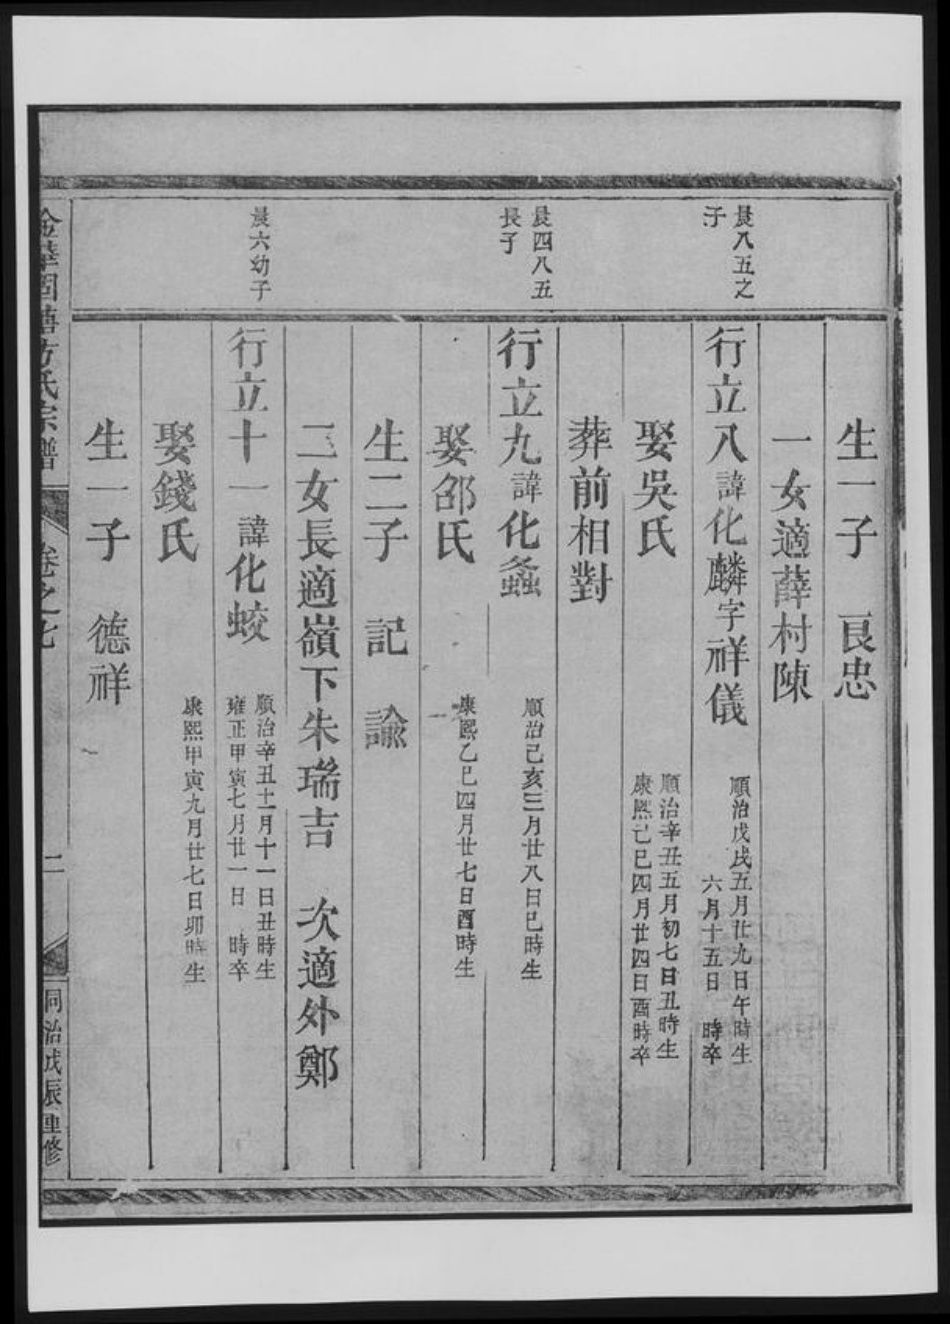 生一子 良忠
一女適薛村陳
晨八五之
子
行立八諱化麟字祥儀
順治戊戌五月廿九日午時生
六月十五日 時卒
娶吳氏
順治辛丑五月初七日丑時生
康熙己巳四月廿四日酉時卒
葬前相對
晨四八五
長子
行立九諱化螽
順治己亥三月廿八日巳時生
娶邵氏
康熙乙巳四月廿七日酉時生
生二子 記 諭
二女長適嶺下朱瑞吉 次適外鄭
晨六幼子
行立十一諱化蛟
順治辛丑十一月十一日丑時生
雍正甲寅七月廿一日 時卒
娶錢氏
康熙甲寅九月廿七日卯時生
生一子 德祥
金華 方氏宗譜 卷之七 二 同治戊辰重修